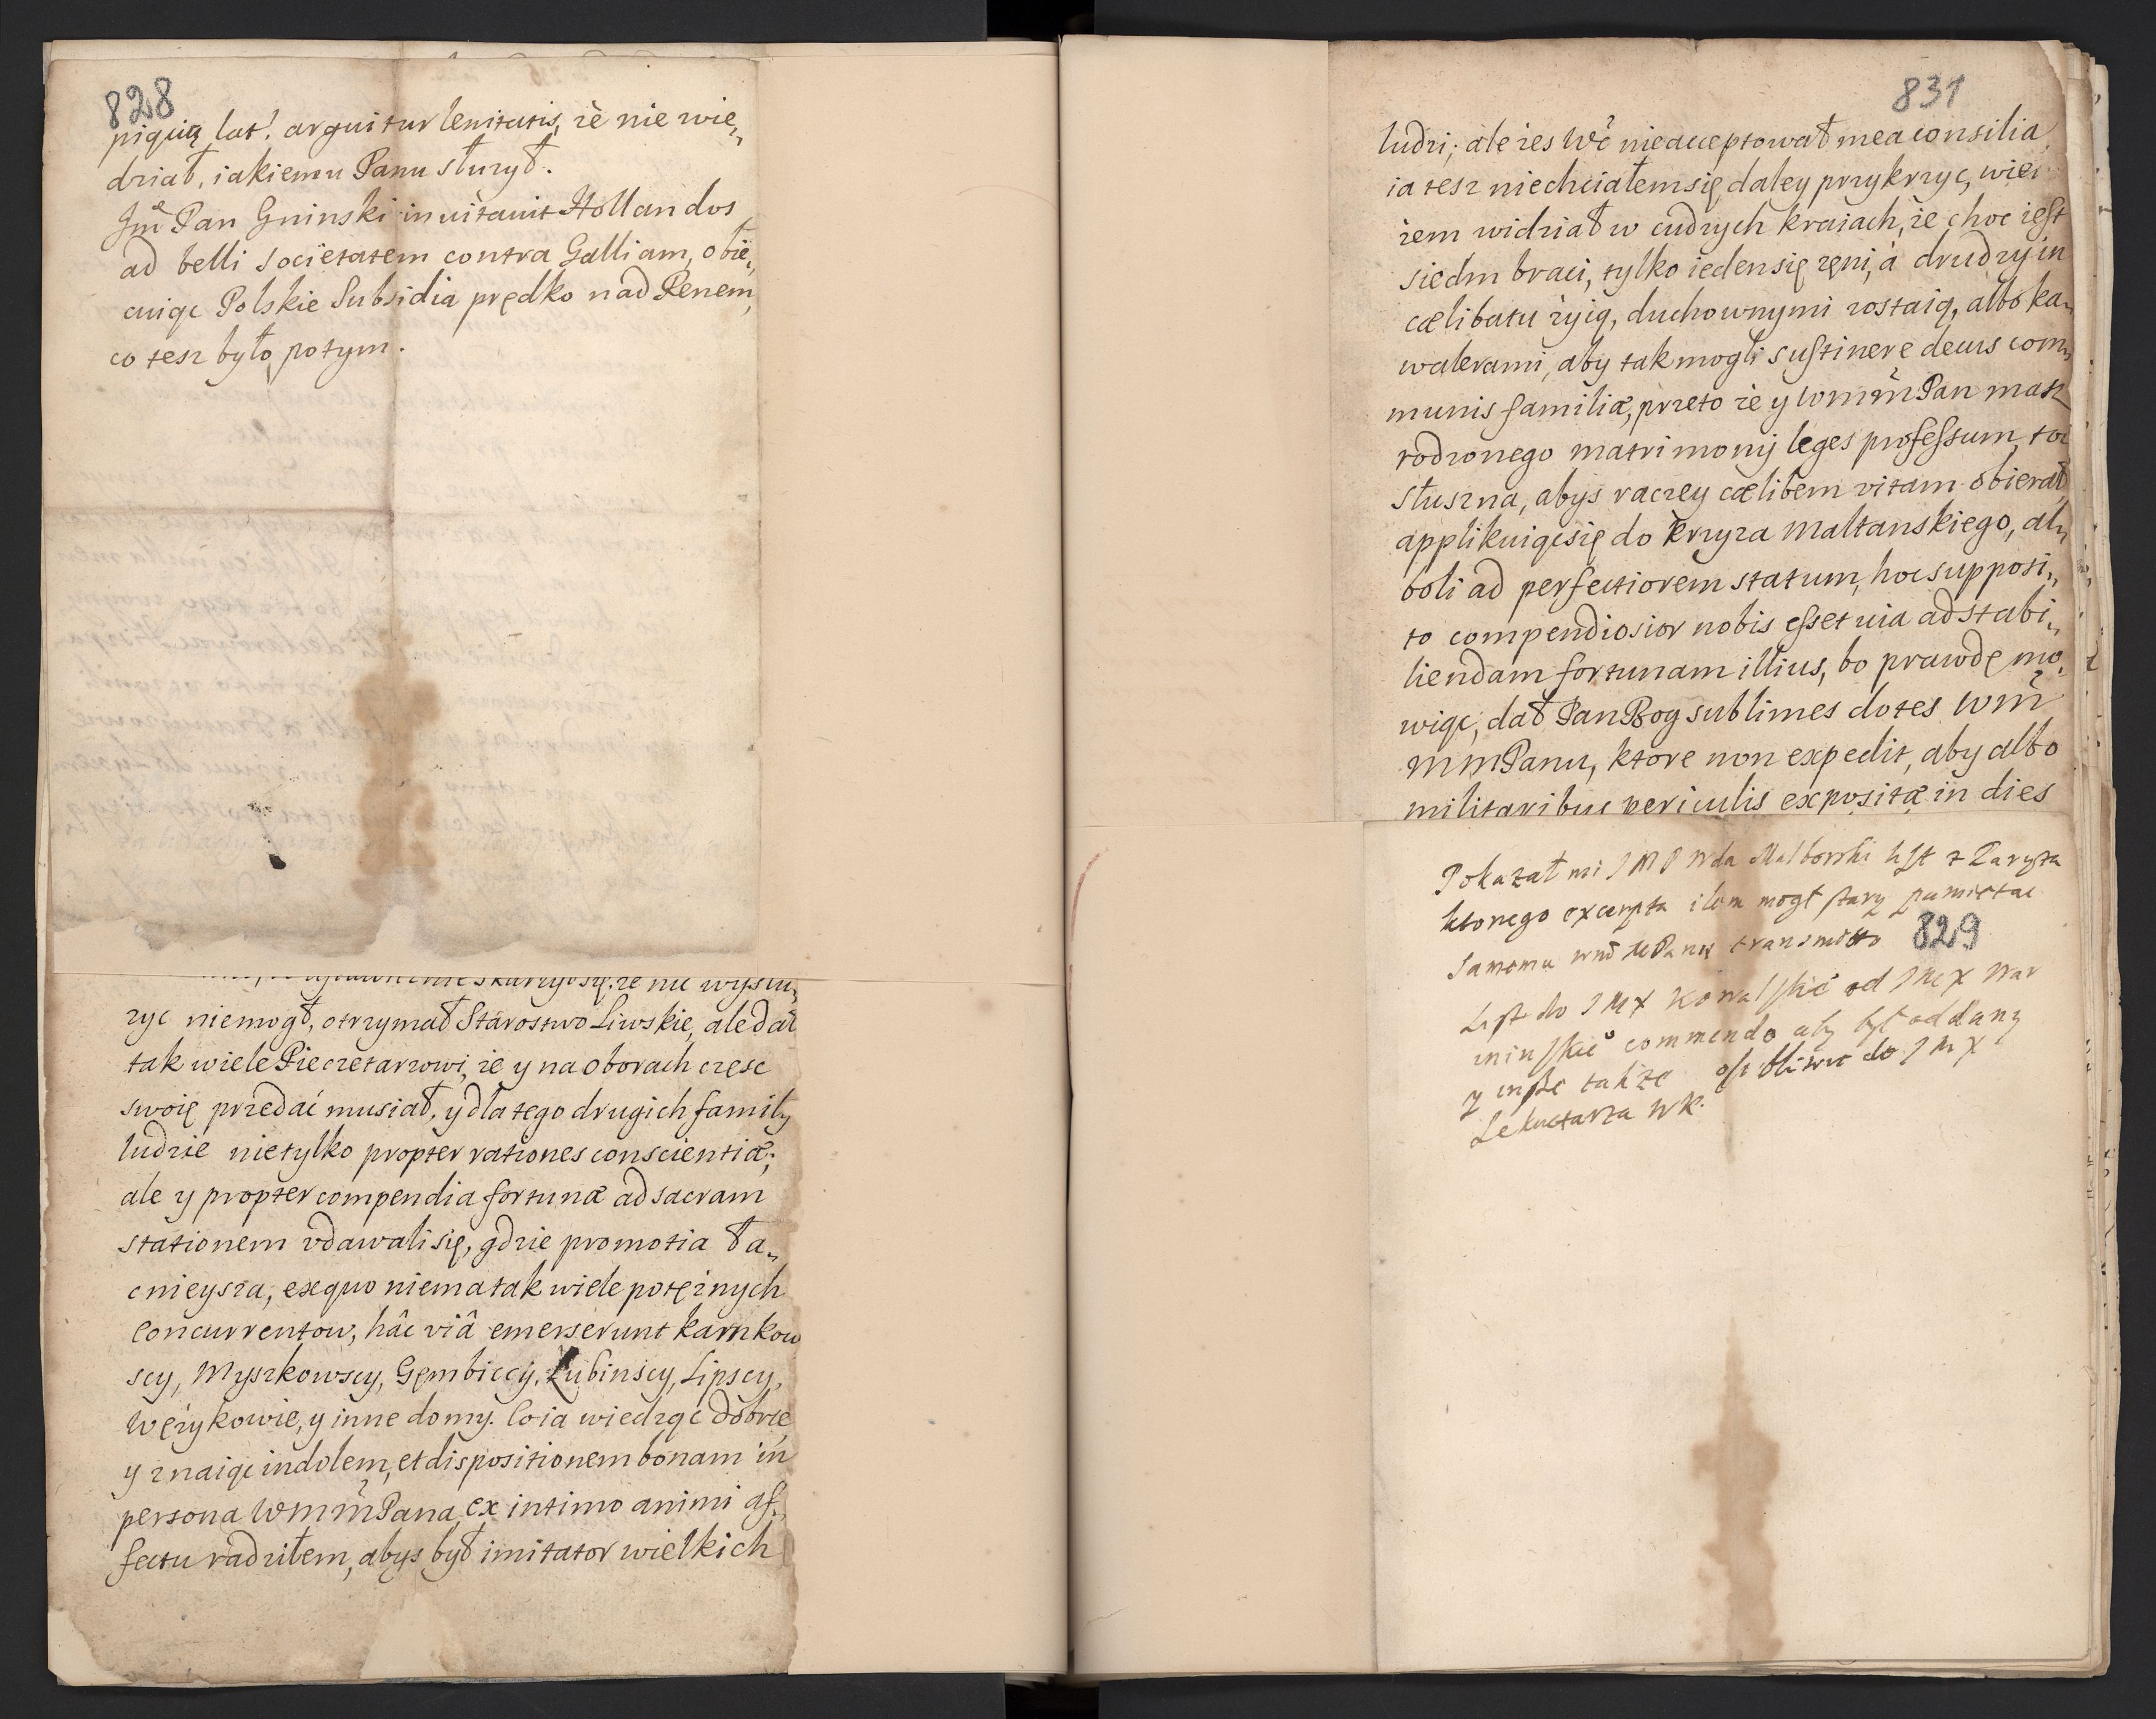 828
piąią lat. arguitur lenitatis, że nie wie„
dział, iakiemu Panu służył.
Jmć Pan Gninski inuitauit Hollandos
ad belli societatem contra Galliam, obie„
cuiąc Polskie Subsidia prędko nad Renem,
co tesz było potym.
skarżył się że nie wysłu„
zyc niemogł, otrzymał Starostwo Liwskie, ale dał
tak wiele Pieczetarzowi, że y na oborach czesc
swoię przedać musiał, y dla tego drugich family
ludzie nietylko propter rationes conscientiæ;
ale y propter compendia fortunæ ad sacram
stationem vdawali się, gdzie promotia ła„
cnieysza, exquo niema tak wiele potężnych
concurrentow, hâc viâ emerserunt Karnkow
scy, Myszkowscy, Gęmbiccy, Łubinscy, Lipscy,
Wężykowie, y inne domy. Co ia wiedząc dobrze
y znaiąc indolem, et dispositionem bonam in
persona WMMPana ex intimo animi af„
fectu radziłem, abys był imitator wielkich
831
ludzi; ale zes Wć nieacceptował mea consilia
ia tesz niechciałem się daley przykrzyc, wiei
zem widział w cudzych kraiach, że choc iest
siedm braci, tylko ieden się zęni, à drudzy in
cælibatu żyią, duchownymi zostaią, albo ka„
walerami, aby tak mogli sustinere decus com„
munis familiæ, przeto że y WMMPan masz
rodzonego matrimonij leges professum, toi
słuszna, abys raczey cælibem vitam obierał
applikuiąc się do krzyza Maltanskiego, al„
boli ad perfectiorem statum, hoc supposi„
to compendiosior nobis esset uia ad stabi„
liendam fortunam illius, bo prawdę mo„
wiąc, dał Pan Bog sublimes dotes WM
MMPanu, ktore non expedit, aby albo
militaribus periculis expositæ in dies
Pokazał mi JMP Wda Malborski list z Paryza
ktorego excerpta ilem mogł stary pamietac
samemu wmć MPanu transmitto 829
List do JMX Kowalskie° od JMX War
minskie° commendo aby był oddany
y insze także osobliwie do JMX
Sekretarza WK.